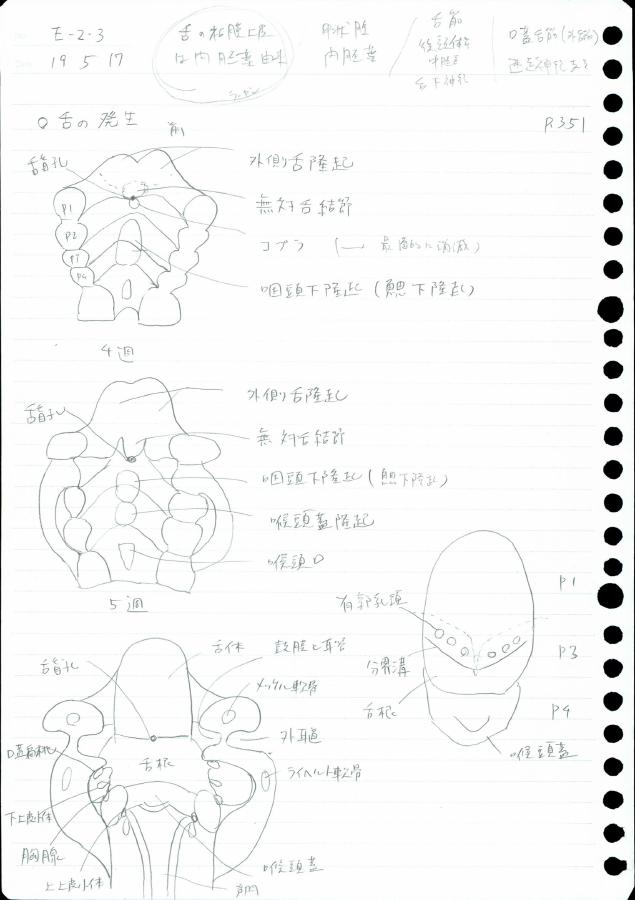 E-2-3
19 5 17
舌の粘膜上皮
は内胚葉由来
内胚葉
舌筋
中胚葉
舌下神経
口蓋舌筋
迷走神経
○ 舌の発生
P.351
前
舌盲孔
外側舌隆起
無対舌結節
コプラ (― 最面的に消滅)
咽頭下隆起 (鰓下隆起)
P1
P2
P3
P4
4週
舌盲孔
外側舌隆起
無対舌結節
咽頭下隆起 (鰓下隆起)
喉頭蓋隆起
喉頭口
5週
有郭乳頭
分界溝
舌根
喉頭蓋
P1
P3
P4
舌盲孔
舌体
鼓膣と耳管
メッケル軟骨
外耳道
ライヘルト軟骨
舌根
口蓋扁桃
下上皮小体
胸腺
上上皮小体
喉頭蓋
声門